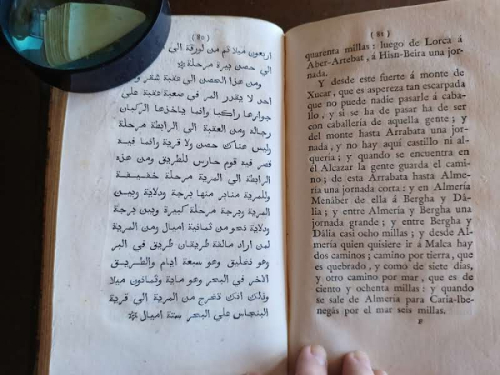 ( 80 )
اربعون ميلا ثم من لورقة الى
الى حصن بيرة مرحلة
ومن هذا الحصن الى عقبة شقر
احد لا يقدر المر فى صعبة عقبة على
جوازها راكبا وانما ياخذها الركبان
رجالة ومن العقبة الى الرابطة مرحلة
وليس هناك حصن ولا قرية وانما فيه
قصر فيه قوم حارس للطريق ومن هذه
الرابطة الى المرية مرحلة خفيفة
وللمرية منابر منها برجة ودلاية وبين
المرية وبرجة مرحلة كبيرة وبين برجة
ودلاية نحو من ثمانية اميال ومن المرية
لمن اراد مالقة طريقان طريق فى البر
وهو تحليق وهو سبعة ايام والطريق
الاخر فى البحر وهو ماية وثمانون ميلا
وذلك انك تخرج من المرية الى قرية
البنجاس على البحر ستة اميال
( 81 )
quarenta millas: luego de Lorca á
Aber-Artebat, á Hisn-Beira una jor-
nada.
Y desde este fuerte á monte de
Xucar, que es aspereza tan escarpada
que no puede nadie pasarle á caba-
llo, y si se ha de pasar ha de ser
con caballería de aquella gente; y
del monte hasta Arrabata una jor-
nada, y no hay aquí castillo ni al-
queria; y quando se encuentra en
él Alcazar la gente guarda el cami-
no; de esta Arrabata hasta Alme-
ría una jornada corta: y en Almería
Menáber de ella á Bergha y Dá-
lia; y entre Almería y Bergha una
jornada grande; y entre Bergha y
Dália casi ocho millas; y desde Al-
mería quien quisiere ir á Malca hay
dos caminos; camino por tierra, que
es quebrado, y como de siete dias,
y otro camino por mar, que es de
ciento y ochenta millas: y quando
se sale de Almeria para Caria-Ibe-
negás por el mar seis millas.
F